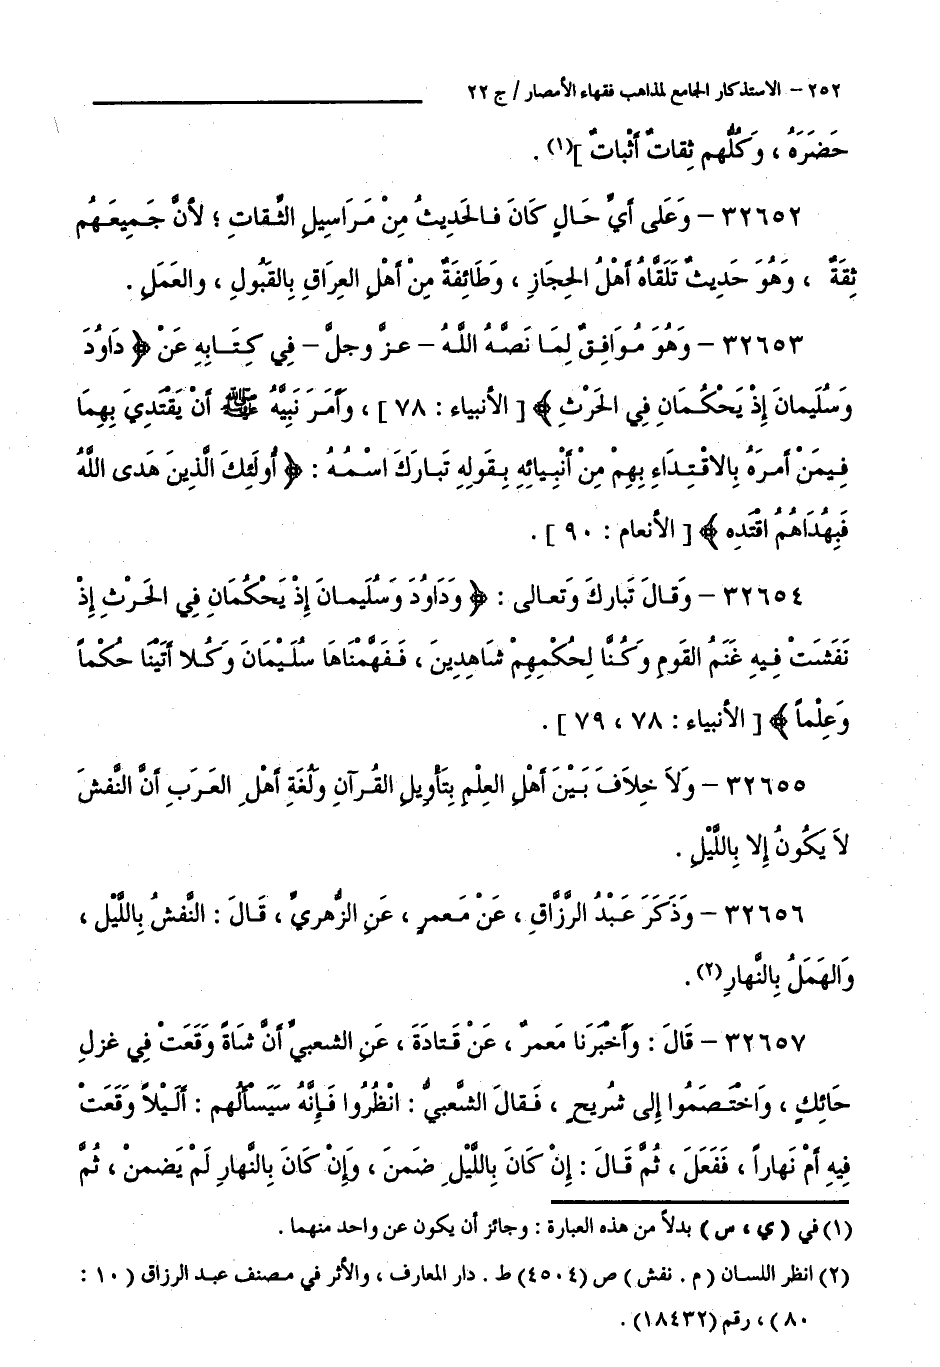 ٢٥٢ - الاستذكار الجامع لمذاهب فقهاء الأمصار / ج ٢٢
حَضَرَهُ ، وَكُلُّهم ثِقاتٌ أثْباتٌ ](١) .
٣٢٦٥٢ - وَعَلى أيِّ حَالٍ كَانَ فَالحَدِيثُ مِنْ مَرَاسِيلِ الثِّقاتِ ؛ لأنَّ جَمِيعَهُم
ثِقَةٌ ، وَهُوَ حَدِيثٌ تَلَقَّاهُ أهْلُ الحِجَازِ ، وَطَائِفَةٌ مِنْ أهْلِ العِرَاقِ بِالقَبُولِ ، والعَمَلِ .
٣٢٦٥٣ - وَهُوَ مُوَافِقٌ لِمَا نَصَّهُ اللَّهُ - عزَّ وجلَّ - في كِتَابِه عَنْ ﴿ دَاوُدَ
وَسُلَيمانَ إِذْ يَحْكُمَانِ فِي الحَرْثِ ﴾ [ الأنبياء : ٧٨ ] ، وأَمَرَ نَبِيَّهُ ﷺ أنْ يَقْتَدِيَ بِهِمَا
فِيمَنْ أمرَهُ بِالاقْتِدَاءِ بِهِمْ مِنْ أنْبِيائِهِ بِقَولِهِ تَبارَكَ اسْمُهُ : ﴿ أُولَئِكَ الَّذِينَ هَدى اللَّهُ
فَبِهُدَاهُمُ اقْتَدِه ﴾ [ الأنعام : ٩٠ ] .
٣٢٦٥٤ - وَقَالَ تَبارَكَ وَتَعالى : ﴿ وَدَاوُدَ وَسُلَيمانَ إِذْ يَحْكُمَانِ فِي الحَرْثِ إِذْ
نَفَشَتْ فِيهِ غَنَمُ القَومِ وَكُنَّا لِحُكْمِهِمْ شَاهِدِينَ ، فَفَهَّمْنَاهَا سُلَيْمَانَ وَكُلا أتَيْنَا حُكْماً
وَعِلْماً ﴾ [ الأنبياء : ٧٨ ، ٧٩ ] .
٣٢٦٥٥ - وَلاَ خِلاَفَ بَيْنَ أهْلِ العِلْمِ بِتَأوِيلِ القُرآنِ وَلُغَةِ أهْلِ العَرَبِ أنَّ النَّفْشَ
لاَ يَكُونُ إِلا بِاللَّيْلِ .
٣٢٦٥٦ - وَذَكَرَ عَبْدُ الرَّزَّاقِ ، عَنْ مَعمرٍ ، عَنِ الزُّهريِّ ، قَالَ : النَّفشُ بِاللَّيْلِ ،
وَالهَمَلُ بِالنَّهارِ(٢) .
٣٢٦٥٧ - قَالَ : وأَخْبَرَنا مَعمرٌ ، عَنْ قَتادَةَ ، عَنِ الشعبيِّ أنَّ شَاةً وَقَعَتْ فِي غزلِ
حَائِكٍ ، واخْتَصَمُوا إلى شُرَيحٍ ، فَقالَ الشَّعبيُّ : انْظُرُوا فَإِنَّهُ سَيَسْألُهم : ألَيْلاً وَقَعَتْ
فِيهِ أمْ نَهاراً ، فَفَعَلَ ، ثُمَّ قَالَ : إِنْ كَانَ بِاللَّيْلِ ضَمنَ ، وَإِنْ كَانَ بِالنَّهارِ لَمْ يَضمنْ ، ثُمَّ
(١) في ( ي ، س ) بدلاً من هذه العبارة : وجائز أن يكون عن واحد منهما .
(٢) انظر اللسان ( م . نفش ) ص (٤٥٠٤) ط . دار المعارف ، والأثر في مصنف عبد الرزاق ( ١٠ :
٨٠ ) ، رقم (١٨٤٣٢) .